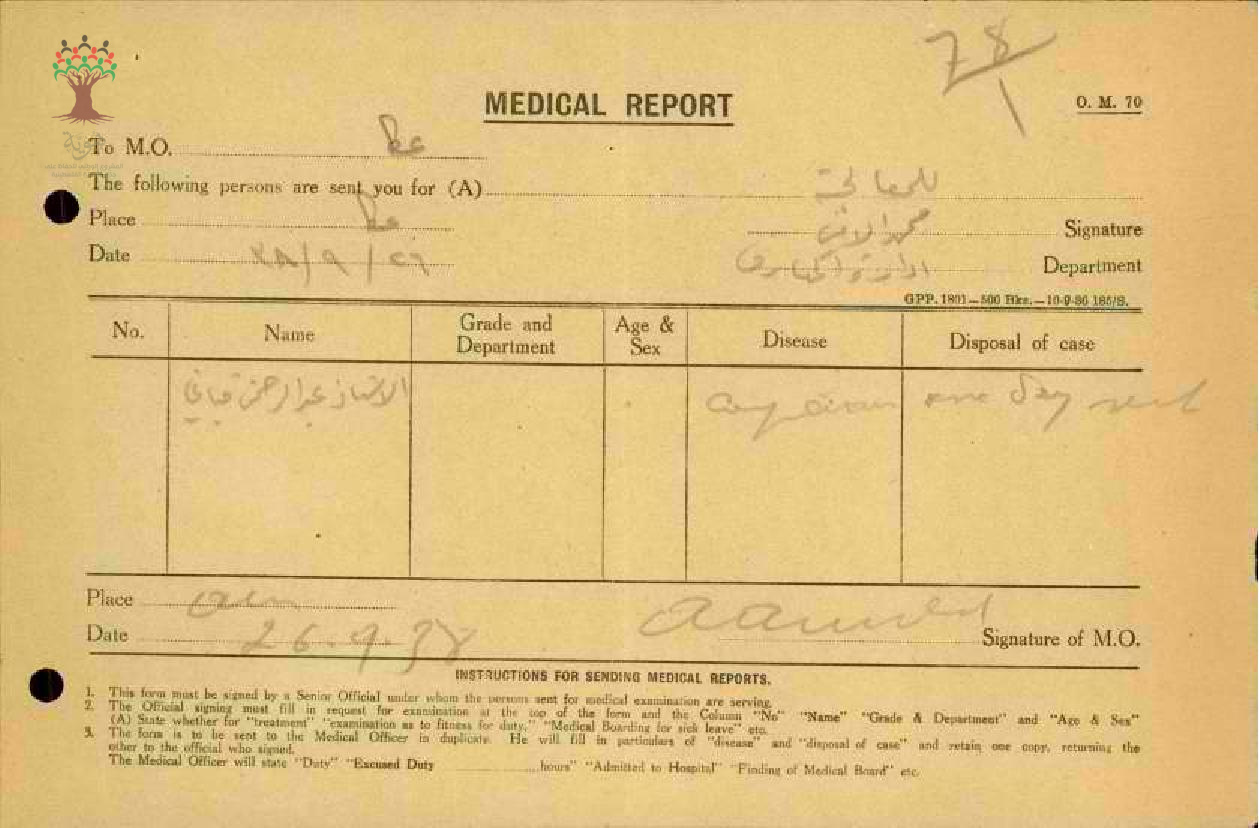 78
MEDICAL REPORT
O. M. 70
To M.O.
The following persons are sent you for (A) للمعالجة
Place
Signature
Date
Department ادارة المعارف
GPP. 1801—500 Bks.—10-9-36 185/S.
No. Name Grade and Department Age & Sex Disease Disposal of case
الاستاذ عبد الرحمن one day rest
Place
Date 26.9.38
Signature of M.O.
INSTRUCTIONS FOR SENDING MEDICAL REPORTS.
1. This form must be signed by a Senior Official under whom the persons sent for medical examination are serving.
2. The Official signing must fill in request for examination at the top of the form and the Column "No" "Name" "Grade & Department" and "Age & Sex"
(A) State whether for "treatment" "examination as to fitness for duty," "Medical Boarding for sick leave" etc.
3. The form is to be sent to the Medical Officer in duplicate. He will fill in particulars of "disease" and "disposal of case" and retain one copy, returning the
other to the official who signed.
The Medical Officer will state "Duty" "Excused Duty ............ hours" "Admitted to Hospital" "Finding of Medical Board" etc.